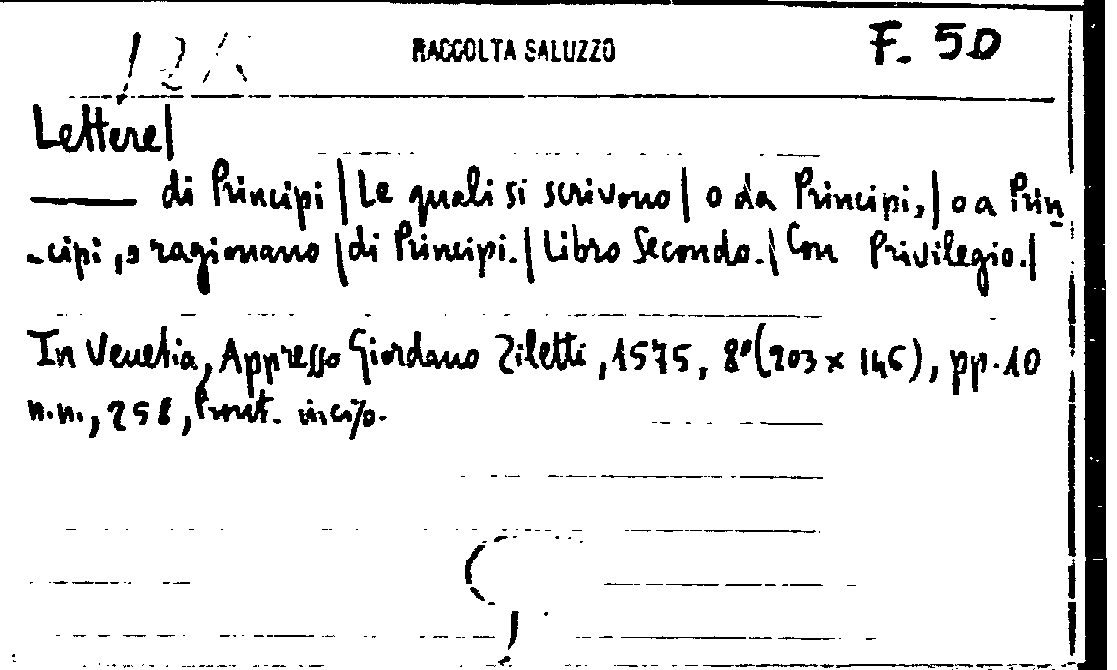 RACCOLTA SALUZZO F. 50
Lettere|
——— di Principi | Le quali si scrivono | o da Principi, | o a Prin
-cipi, o ragionano | di Principi. | Libro Secondo. | Con Privilegio. |
In Venetia, Appresso Giordano Ziletti, 1575, 8° (203 x 146), pp. 10
n.n., 258, Front. inciso.